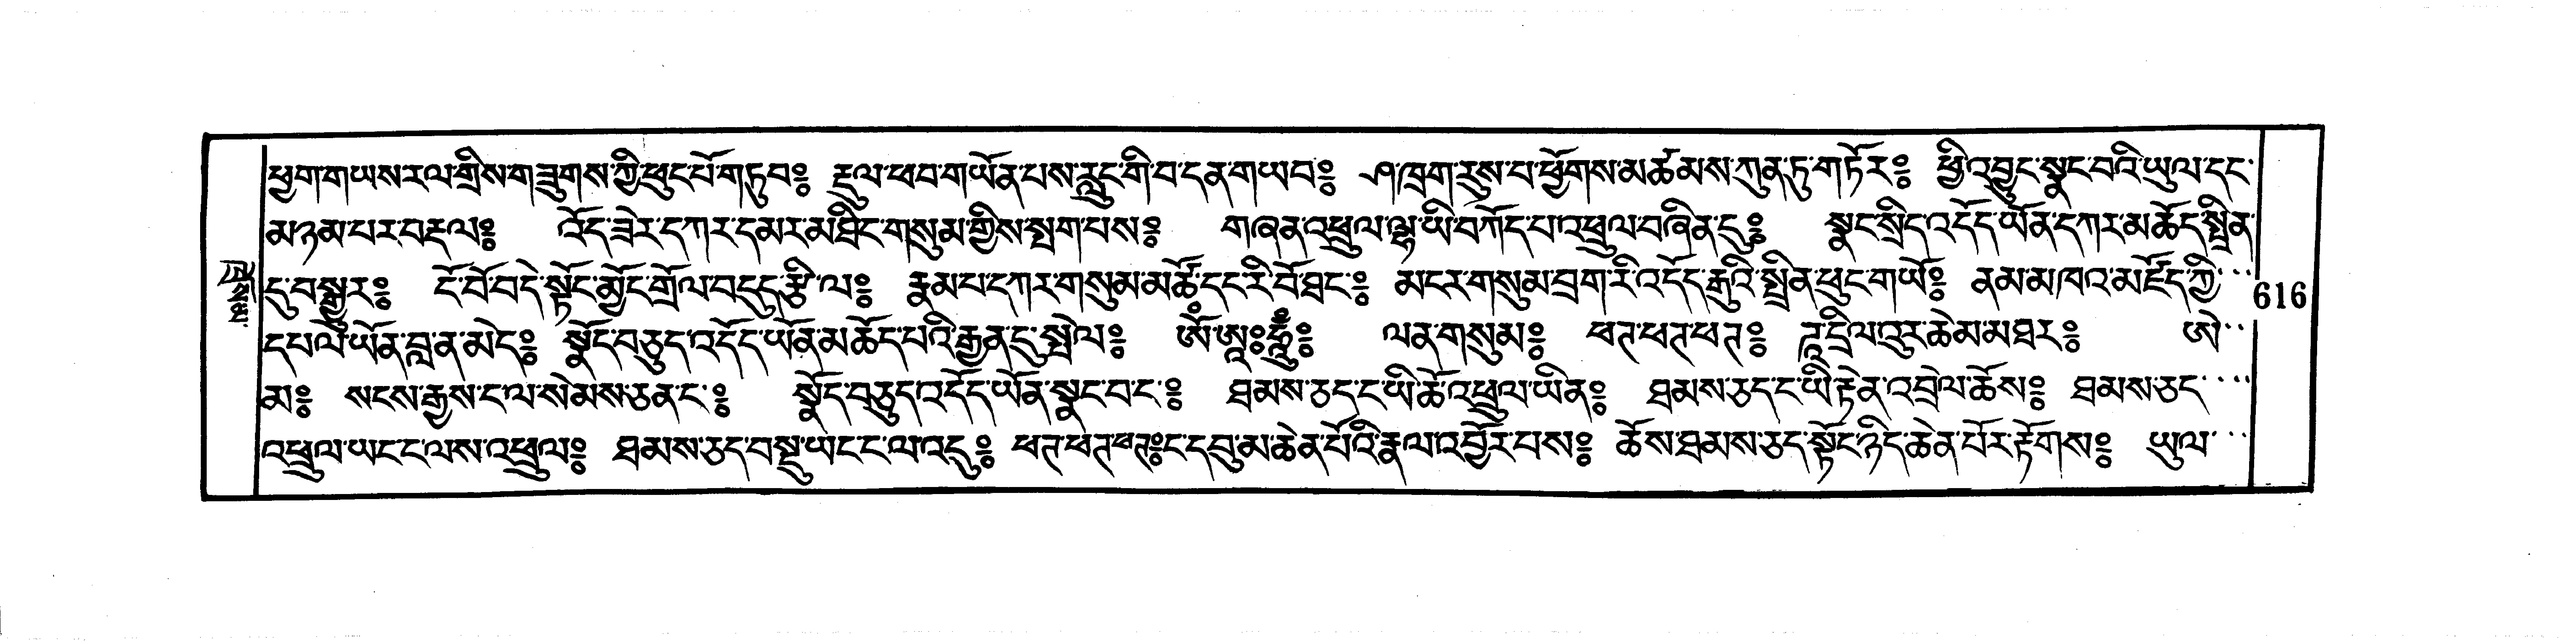 ཕྱག་གཡས་རལ་གྲིས་གཟུགས་ཀྱི་ཕུང་པོ་གཏུབ༔ རྡུལ་ཕབ་གཡོན་པས་རླུང་གི་བ་དན་གཡབ༔ ཤ་ཁྲག་རུས་པ་ཕྱོགས་མཚམས་ཀུན་ཏུ་གཏོར༔ ཕྱི་འབྱུང་སྣང་བའི་ཡུལ་དང་
མ་ཉམ་པར་བརྡལ༔ འོད་ཟེར་དཀར་དམར་མཐིང་གསུམ་གྱིས་སྤྲག་པས༔ གཞན་འཕྲུལ་ལྷ་ཡི་བཀོད་པ་འཕྲུལ་བཞིན་དུ༔ སྣང་སྲིད་འདོད་ཡོན་དཀར་མཆོད་སྤྲིན་
དུ་བསྒྱུར༔ ངོ་བོ་བདེ་སྟོང་མྱོང་གྲོལ་བདུད་རྩི་ལ༔ རྣམ་པ་དཀར་གསུམ་མཚོ་དང་རི་བོ་ཐང་༔ མངར་གསུམ་བྲག་རི་འདོད་རྒུའི་སྤྲིན་ཕུང་གཡོ༔ ནམ་མཁའ་མཛོད་ཀྱི་
དཔལ་ཡོན་བླན་མེད༔ སྣོད་བཅུད་འདོད་ཡོན་མཆོད་པའི་རྒྱན་དུ་སྤེལ༔ ཨོཾ་ཨཱཿཧཱུྃ༔ ལན་གསུམ༔ ཕཊ་ཕཊ་ཕཊ༔ ཌཱ་དྲིལ་འུར་ཆེམ་མཐར༔ ཨེ་
མ༔ སངས་རྒྱས་ང་ལ་སེམས་ཅན་ང་༔ སྣོད་བཅུད་འདོད་ཡོན་སྣང་བ་ང་༔ ཐམས་ཅད་ང་ཡི་ཆོ་འཕྲུལ་ཡིན༔ ཐམས་ཅད་ང་ཡི་རྟེན་འབྲེལ་ཆོས༔ ཐམས་ཅད་
འཕྲུལ་ཡང་ང་ལས་འཕྲུལ༔ ཐམས་ཅད་བསྡུ་ཡང་ང་ལ་འདུ༔ ཕཊ་ཕཊ་ཕཊ༔ ང་དབུ་མ་ཆེན་པོའི་རྣལ་འབྱོར་པས༔ ཆོས་ཐམས་ཅད་སྟོང་ཉིད་ཆེན་པོར་རྟོགས༔ ཡུལ་
616